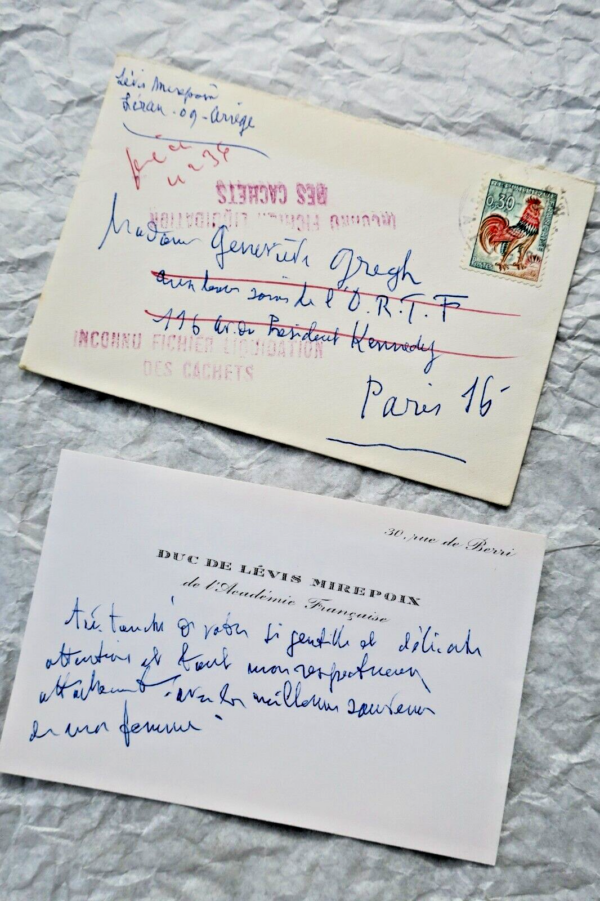 Lévis Mirepoix
Léran - 09 - Ariège
0,30
n° 34
INCONNU FICHIER LIQUIDATION
DES CACHETS
Madame Geneviève Gregh
aux bons soins de l'O.R.T.F
116 av. du Président Kennedy
INCONNU FICHIER LIQUIDATION
DES CACHETS
Paris 16
30, rue de Berri
DUC DE LÉVIS MIREPOIX
de l'Académie Française
très touché de votre si gentille et délicate
attention et tout mon respectueux
attachement avec les meilleurs souvenirs
de ma femme